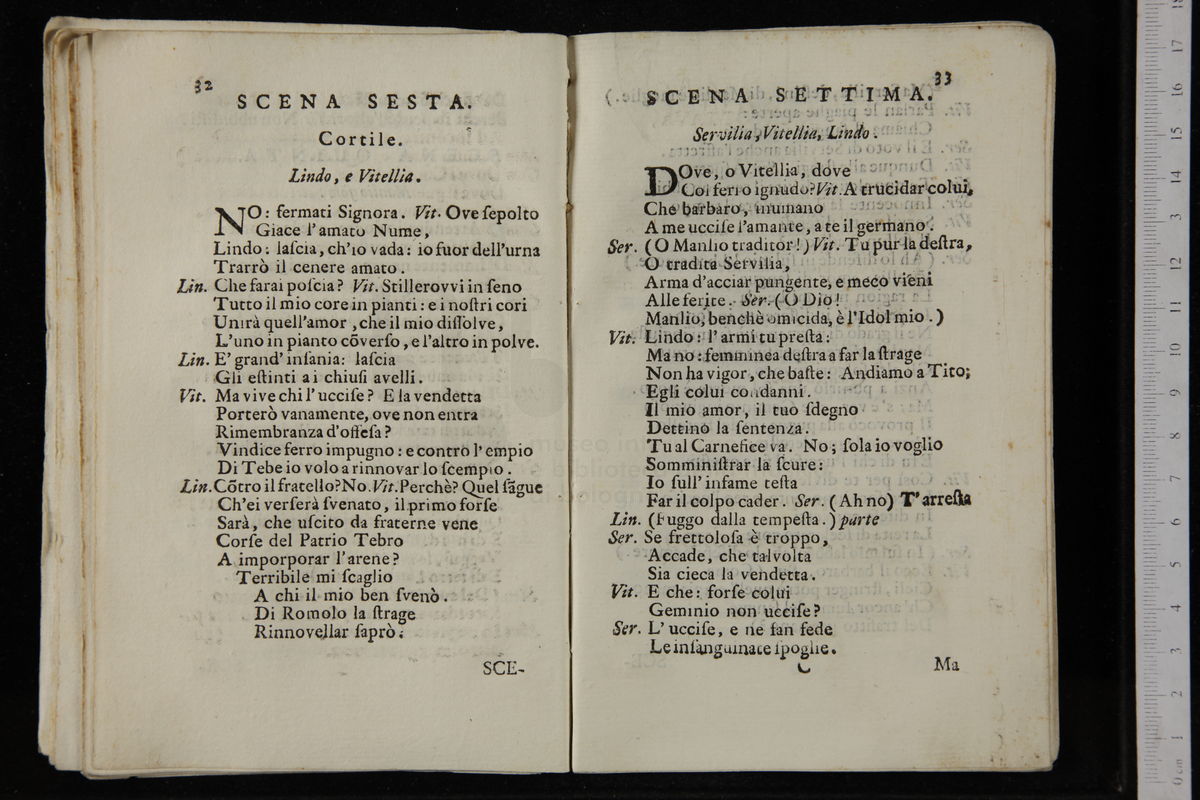 32
SCENA SESTA.
Cortile.
Lindo, e Vitellia.
NO: fermati Signora. Vit. Ove ſepolto
Giace l'amato Nume,
Lindo: laſcia, ch'io vada: io fuor dell'urna
Trarrò il cenere amato.
Lin. Che farai poſcia? Vit. Stillerovvi in ſeno
Tutto il mio core in pianti: e i noſtri cori
Unirà quell'amor, che il mio diſſolve,
L'uno in pianto cõverſo, e l'altro in polve.
Lin. E' grand' inſania: laſcia
Gli eſtinti ai chiuſi avelli.
Vit. Ma vive chi l' ucciſe? E la vendetta
Porterò vanamente, ove non entra
Rimembranza d'offeſa?
Vindice ferro impugno: e contro l' empio
Di Tebe io volo a rinnovar lo ſcempio.
Lin. Cõtro il fratello? No. Vit. Perchè? Quel ſãgue
Ch'ei verſerà ſvenato, il primo forſe
Sarà, che uſcito da fraterne vene
Corſe del Patrio Tebro
A imporporar l'arene?
Terribile mi ſcaglio
A chi il mio ben ſvenò.
Di Romolo la ſtrage
Rinnovellar ſaprò.
SCE-
33
SCENA SETTIMA.
Servilia, Vitellia, Lindo.
DOve, o Vitellia, dove
Col ferro ignudo? Vit. A trucidar colui,
Che barbaro, inumano
A me ucciſe l'amante, a te il germano.
Ser. (O Manlio traditor!) Vit. Tu pur la deſtra,
O tradita Servilia,
Arma d'acciar pungente, e meco vieni
Alle ferite. Ser. (O Dio!
Manlio, benchè omicida, è l'Idol mio.)
Vit. Lindo: l' armi tu preſta:
Ma no: femminea deſtra a far la ſtrage
Non ha vigor, che baſte: Andiamo a Tito;
Egli colui condanni.
Il mio amor, il tuo ſdegno
Dettino la ſentenza.
Tu al Carnefice va. No; ſola io voglio
Somminiſtrar la ſcure:
Io ſull' infame teſta
Far il colpo cader. Ser. (Ah no) T' arreſta
Lin. (Fuggo dalla tempeſta.) parte
Ser. Se frettoloſa è troppo,
Accade, che talvolta
Sia cieca la vendetta.
Vit. E che: forſe colui
Geminio non ucciſe?
Ser. L' ucciſe, e ne fan fede
Le inſanguinate ſpoglie.
C
Ma